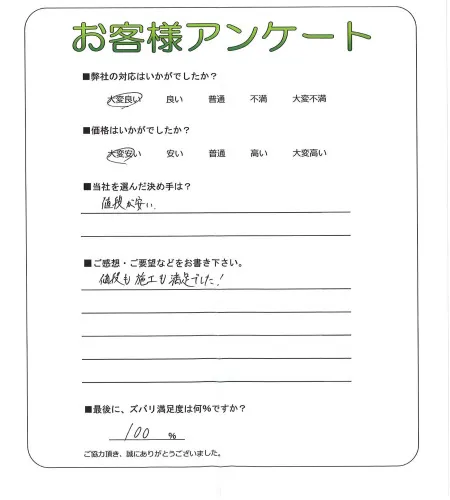 お客様アンケート
■弊社の対応はいかがでしたか？
大変良い 良い 普通 不満 大変不満
■価格はいかがでしたか？
大変安い 安い 普通 高い 大変高い
■当社を選んだ決め手は？
値段が安い。
■ご感想・ご要望などをお書き下さい。
値段も施工も満足でした！
■最後に、ズバリ満足度は何%ですか？
100 %
ご協力頂き、誠にありがとうございました。